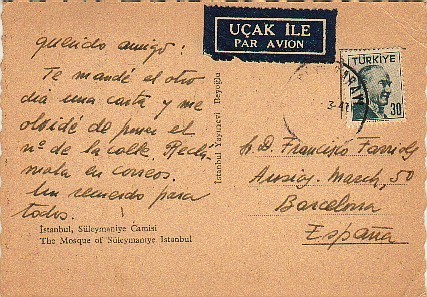 querido amigo:
Te mandé el otro
dia una carta y me
olvidé de poner el
nº de la calle. Recla-
mala en correos.
Un recuerdo para
todos.
İstanbul, Süleymaniye Camisi
The Mosque of Süleymaniye Istanbul
İstanbul Yayınevi Beyoğlu
UÇAK İLE
PAR AVION
TÜRKİYE
30
Sr. D. Francisco
Ausias March, 50
Barcelona
España